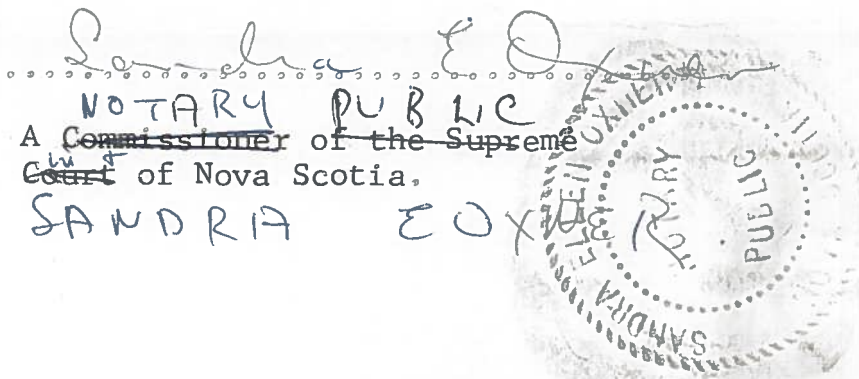 Sandra E Oxner
NOTARY PUBLIC
A Commissioner of the Supreme
in +
Court of Nova Scotia.
SANDRIA E OXNER
SANDRA ELLEN OXNER
NOTARY
PUBLIC